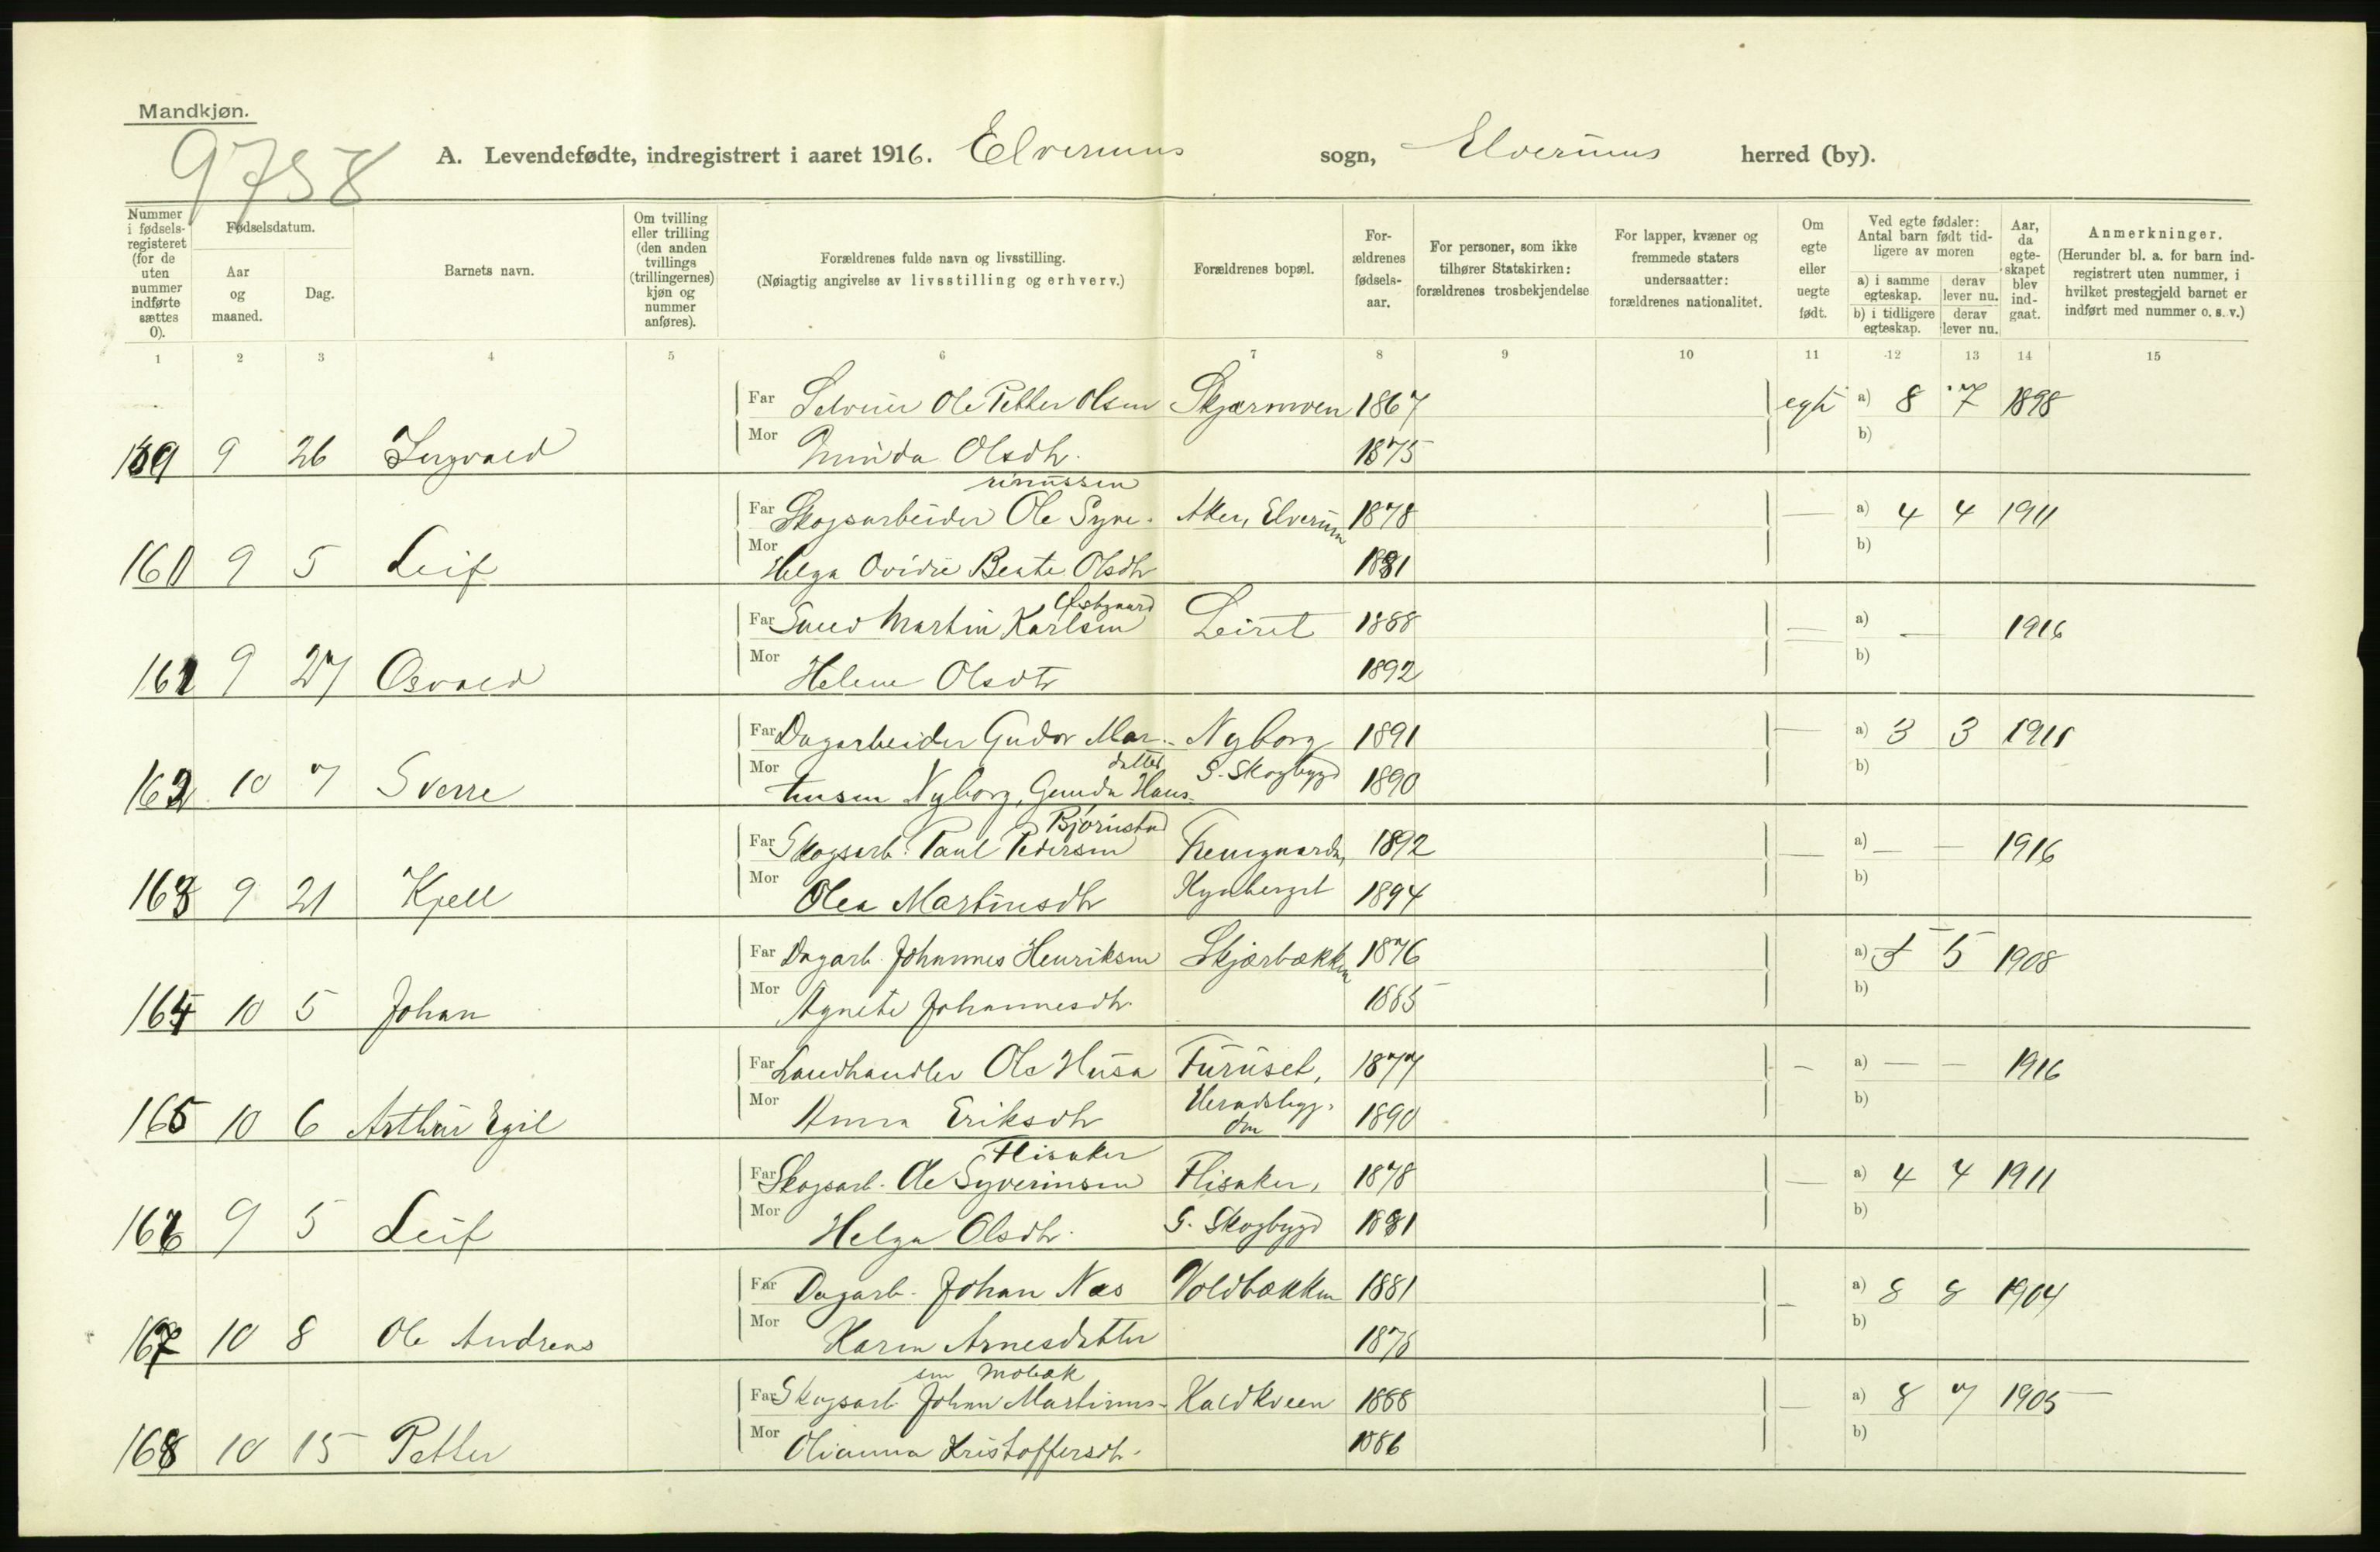 Mandkjøn.
9758
A. Levendefødte, indregistrert i aaret 1916. Elverums sogn, Elverums herred (by).
Nummer i fødselsregisteret (for de uten nummer indførte sættes 0).
Fødselsdatum.
Aar og maaned.
Dag.
Barnets navn.
Om tvilling eller trilling (den anden tvillings (trillingernes) kjøn og nummer anføres).
Forældrenes fulde navn og livsstilling.
(Nøiagtig angivelse av livsstilling og erhverv.)
Forældrenes bopæl.
Forældrenes fødselsaar.
For personer, som ikke tilhører Statskirken: forældrenes trosbekjendelse
For lapper, kvæner og fremmede staters undersaatter: forældrenes nationalitet.
Om egte eller uegte født.
Ved egte fødsler: Antal barn født tidligere av moren
a) i samme egteskap. derav lever nu.
b) i tidligere egteskap. derav lever nu.
Aar, da egteskapet blev indgaat.
Anmerkninger.
(Herunder bl. a. for barn indregistrert uten nummer, i hvilket prestegjeld barnet er indført med nummer o. s. v.)
1 2 3 4 5 6 7 8 9 10 11 12 13 14 15
Far Selveier Ole Petter Olsen Skjærmoen 1867 egte a) 8 7 1898
159 9 26 Ingvald Mor Minda Olsdtr. 1875 b)
rinussen
Far Skogsarbeider Ole Syve- Aker, Elverum 1878 — a) 4 4 1911
160 9 5 Leif Mor Helga Ovidie Beate Olsdtr 1881 b)
Østgaard
Far Martin Karlsen Leiret 1888 — a) — 1916
161 9 27 Osvald Mor Helene Olsdtr 1892 b)
Far Dagarbeider Gudor Mar- Nyborg 1891 — a) 3 3 1911
datter
162 10 7 Sverre Mor tinsen Nyborg, Gunda Hans- S. Skogbygd 1890 b)
Bjørnstad
Far Skogsarb. Paul Pedersen 1892 — a) — — 1916
163 9 21 Kjell Mor Olea Martinsdtr Kynberget 1894 b)
Far Dagarb. Johannes Henriksen Skjærbækken 1876 a) 5 5 1908
164 10 5 Johan Mor Agnete Johannesdtr. 1885 b)
Far Landhandler Ole Husa Furuset, 1877 — a) — — 1916
165 10 6 Arthur Egil Mor Anna Eriksdtr Heradsbygden 1890 b)
Flisaker
Far Skogsarb. Ole Syverinsen Flisaker, 1878 — a) 4 4 1911
166 9 5 Leif Mor Helga Olsdtr. S. Skogbygd 1881 b)
Far Dagarb. Johan Næs Voldbækken 1881 — a) 8 8 1904
167 10 8 Ole Andreas Mor Karen Arnesdatter 1876 b)
sen Mobæk
Far Skogsarb. Johan Martinus- Kaldkveen 1888 — a) 8 7 1905
168 10 15 Petter Mor Olianna Kristoffersdtr. 1886 b)